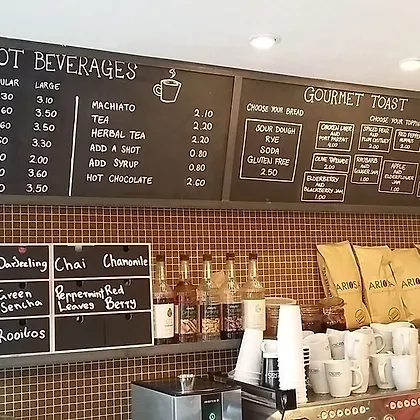 OT BEVERAGES
ULAR LARGE
.30 3.10
.60 3.50
.60 3.50
.30 3.50
.00 2.00
.00 3.60
.00 3.50
MACHIATO 2.10
TEA 2.20
HERBAL TEA 2.20
ADD A SHOT 0.80
ADD SYRUP 0.80
HOT CHOCOLATE 2.60
GOURMET TOAST
CHOOSE YOUR BREAD
SOUR DOUGH
RYE
SODA
GLUTEN FREE
2.50
CHOOSE YOUR TOPPIN
CHICKEN LIVER
AND
PORT PARFAIT
4.00
SPICED PEAR
AND
PLUM CHUTNEY
2.00
RED PEPPER
HUMMUS
2.00
OLIVE TAPENADE
2.00
RHUBARB
AND
GINGER JAM
1.00
APPLE
AND
ELDERFLOWER
JAM
1.00
ELDERBERRY
AND
BLACKBERRY JAM
1.00
Darjeeling
Chai Chamomile
Green
Sencha
Peppermint
Leaves
Red
Berry
Rooibos
ARIOSA
ARIOS
ARIOS